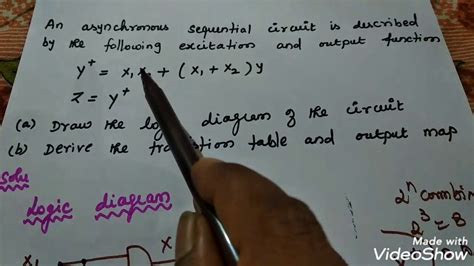 An asynchronous sequential circuit is discribed
by the following excitation and output function
y⁺ = x₁ x₂ + (x₁ + x₂) y
Z = y⁺
(a) Draw the logic diagram of the circuit
(b) Derive the transition table and output map
Solu
Logic diagram
2ⁿ combin
2³ = 8
X
Made with
VideoShow